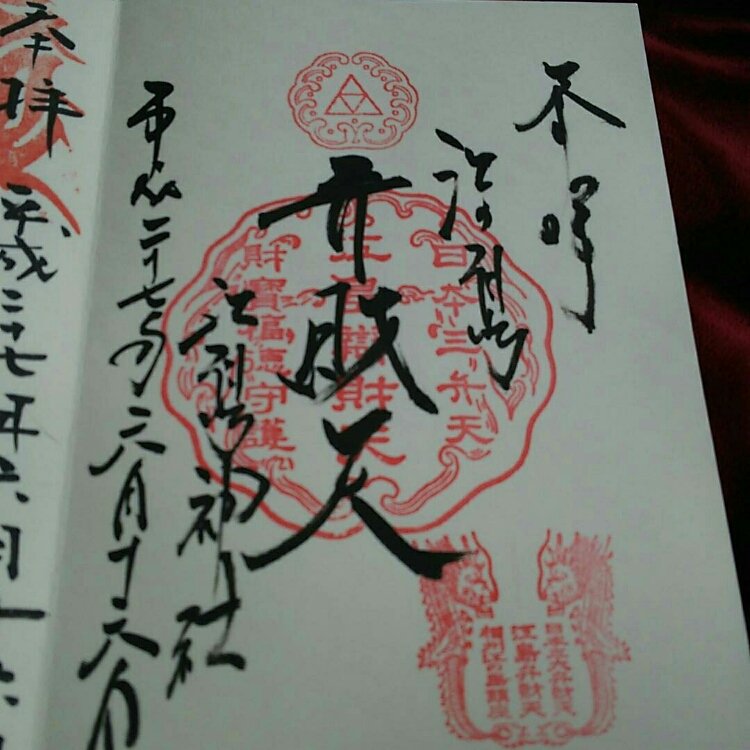 奉拝
江の島
日本三弁天
弁財天
財寶福徳守護
江島神社
平成二十七年六月十六日
日本三大弁財天
江島弁財天
奉拝
平成二十七年六月十六